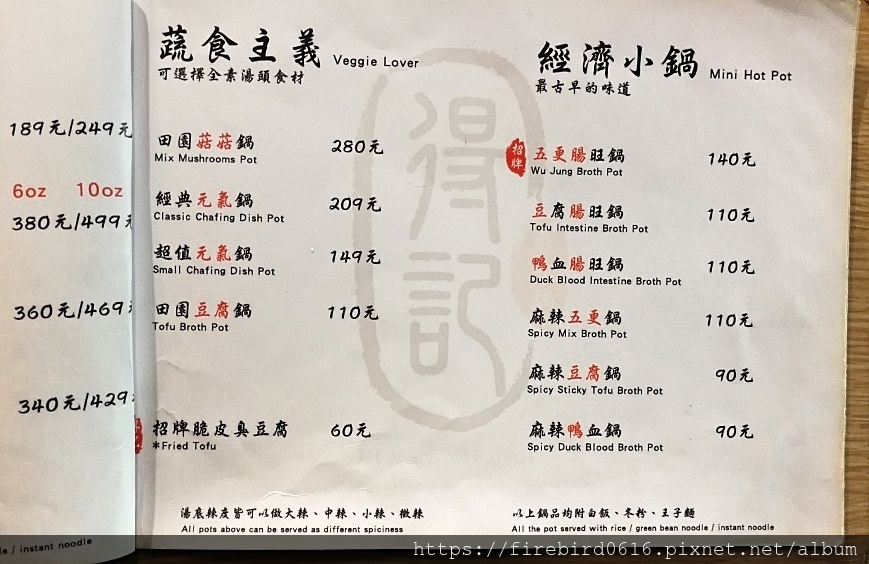 189元/249元
6oz 10oz
380元/499元
360元/469
340元/429
le / instant noodle
蔬食主義 Veggie Lover
可選擇全素湯頭食材
田園菇菇鍋 280元
Mix Mushrooms Pot
經典元氣鍋 209元
Classic Chafing Dish Pot
超值元氣鍋 149元
Small Chafing Dish Pot
田園豆腐鍋 110元
Tofu Broth Pot
招牌脆皮臭豆腐 60元
*Fried Tofu
湯底辣度皆可以做大辣、中辣、小辣、微辣
All pots above can be served as different spiciness
得記
經濟小鍋 Mini Hot Pot
最古早的味道
招牌 五更腸旺鍋 140元
Wu Jung Broth Pot
豆腐腸旺鍋 110元
Tofu Intestine Broth Pot
鴨血腸旺鍋 110元
Duck Blood Intestine Broth Pot
麻辣五更鍋 110元
Spicy Mix Broth Pot
麻辣豆腐鍋 90元
Spicy Sticky Tofu Broth Pot
麻辣鴨血鍋 90元
Spicy Duck Blood Broth Pot
以上鍋品均附白飯、冬粉、王子麵
All the pot served with rice / green bean noodle / instant noodle
https://firebird0616.pixnet.net/album